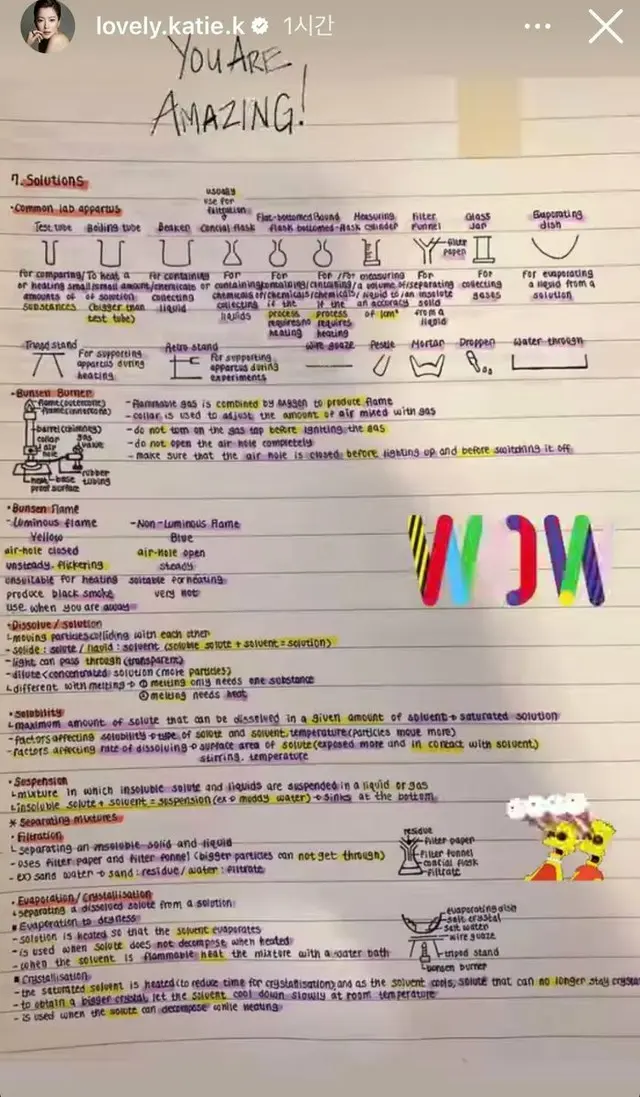 lovely.katie.k 1시간
YOU ARE
AMAZING!
7. Solutions
usually
use for
filtration
·Common lab appartus
Test tube Boiling tube Beaker Conical flask Flat-bottomed Round flask bottomed-flask Measuring cylinder Filter Funnel Glass Jar Evaporating dish
filter
paper
For comparing or heating small amounts of substances
To heat a small amount of solution (bigger than test tube)
For containing chemicals or collecting liquid
For containing chemicals or collecting liquids
For containing chemicals if the process requires no heating
For containing chemicals if the process requires heating
For measuring a volume of liquid to an accuracy of 1cm³
For separating an insoluble solid from a liquid
For collecting gases
For evaporating a liquid from a solution
Tripod stand Retro stand wire guaze Pestle Mortar Dropper Water through
For supporting
appartus during
heating
For supporting
appartus during
experiments
·Bunsen Burner
flame(outercone)
flame(innercone)
barrel(chimney)
collar gas
air valve
hole
rubber
heat base tubing
proof surface
-flammable gas is combined by oxygen to produce flame
-collar is used to adjust the amount of air mixed with gas
-do not turn on the gas tap before igniting the gas
-do not open the air hole completely
-make sure that the air hole is closed before lighting up and before switching it off
·Bunsen Flame
-Luminous flame -Non-Luminous flame
Yellow Blue
air-hole closed air-hole open
unsteady, flickering steady
unsuitable for heating suitable for heating
produce black smoke very hot
use when you are away
WOW
·Dissolve / solution
moving particles colliding with each other
-solide : solute / liquid : solvent (soluble solute + solvent = solution)
-light can pass through (transparent)
-dilute < concentrated solution (more particles)
different with melting → ① melting only needs one substance
② melting needs heat
·Solubility
maximum amount of solute that can be dissolved in a given amount of solvent → saturated solution
-factors affecting solubility → type of solute and solvent, temperature (particles move more)
-factors affecting rate of dissolving → surface area of solute (exposed more and in contact with solvent)
stirring, temperature
·Suspension
mixture in which insoluble solute and liquids are suspended in a liquid or gas
insoluble solute + solvent = suspension (ex → muddy water) → sinks at the bottom
* Separating mixtures
·Filtration
separating an insoluble solid and liquid
-uses filter paper and filter funnel (bigger particles can not get through)
-ex) sand water → sand : residue / water : filtrate
residue
filter paper
filter funnel
conical flask
filtrate
·Evaporation / Crystallisation
separating a dissolved solute from a solution
■Evaporation to dryness
-solution is heated so that the solvent evaporates
-is used when solute does not decompose when heated
-when the solvent is flammable heat the mixture with a water bath
evaporating dish
salt crystal
salt water
wire guaze
tripod stand
bunsen burner
■Crystallisation
-the saturated solvent is heated (to reduce time for crystallisation) and as the solvent cools, solute that can no longer stay
-to obtain a bigger crystal, let the solvent cool down slowly at room temperature
-is used when the solute can decompose while heating